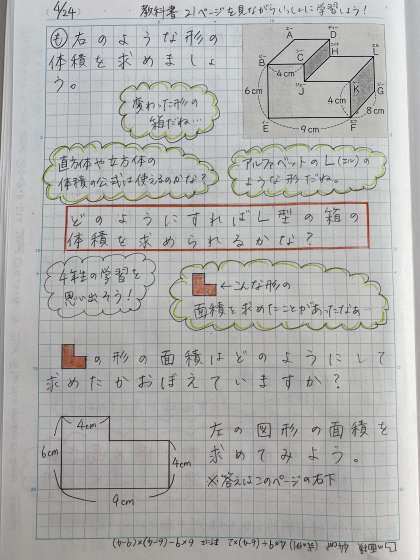 4/24
教科書21ページを見ながらいっしょに学習しよう!
も 右のような形の
体積を求めましょ
う。
A
D
H
L
B
C
4cm
J
K
G
6cm
4cm
8cm
E
F
9cm
変わった形の
箱だね…
直方体や立方体の
体積の公式は使えるのかな?
アルファベットのL(エル)の
ような形だね。
どのようにすればL型の箱の
体積を求められるかな?
4年生の学習を
思い出そう!
←こんな形の
面積を求めたことがあったなぁ…
の形の面積はどのようにして
求めたかおぼえていますか?
4cm
6cm
4cm
9cm
左の図形の面積を
求めてみよう。
※答えはこのページの右下